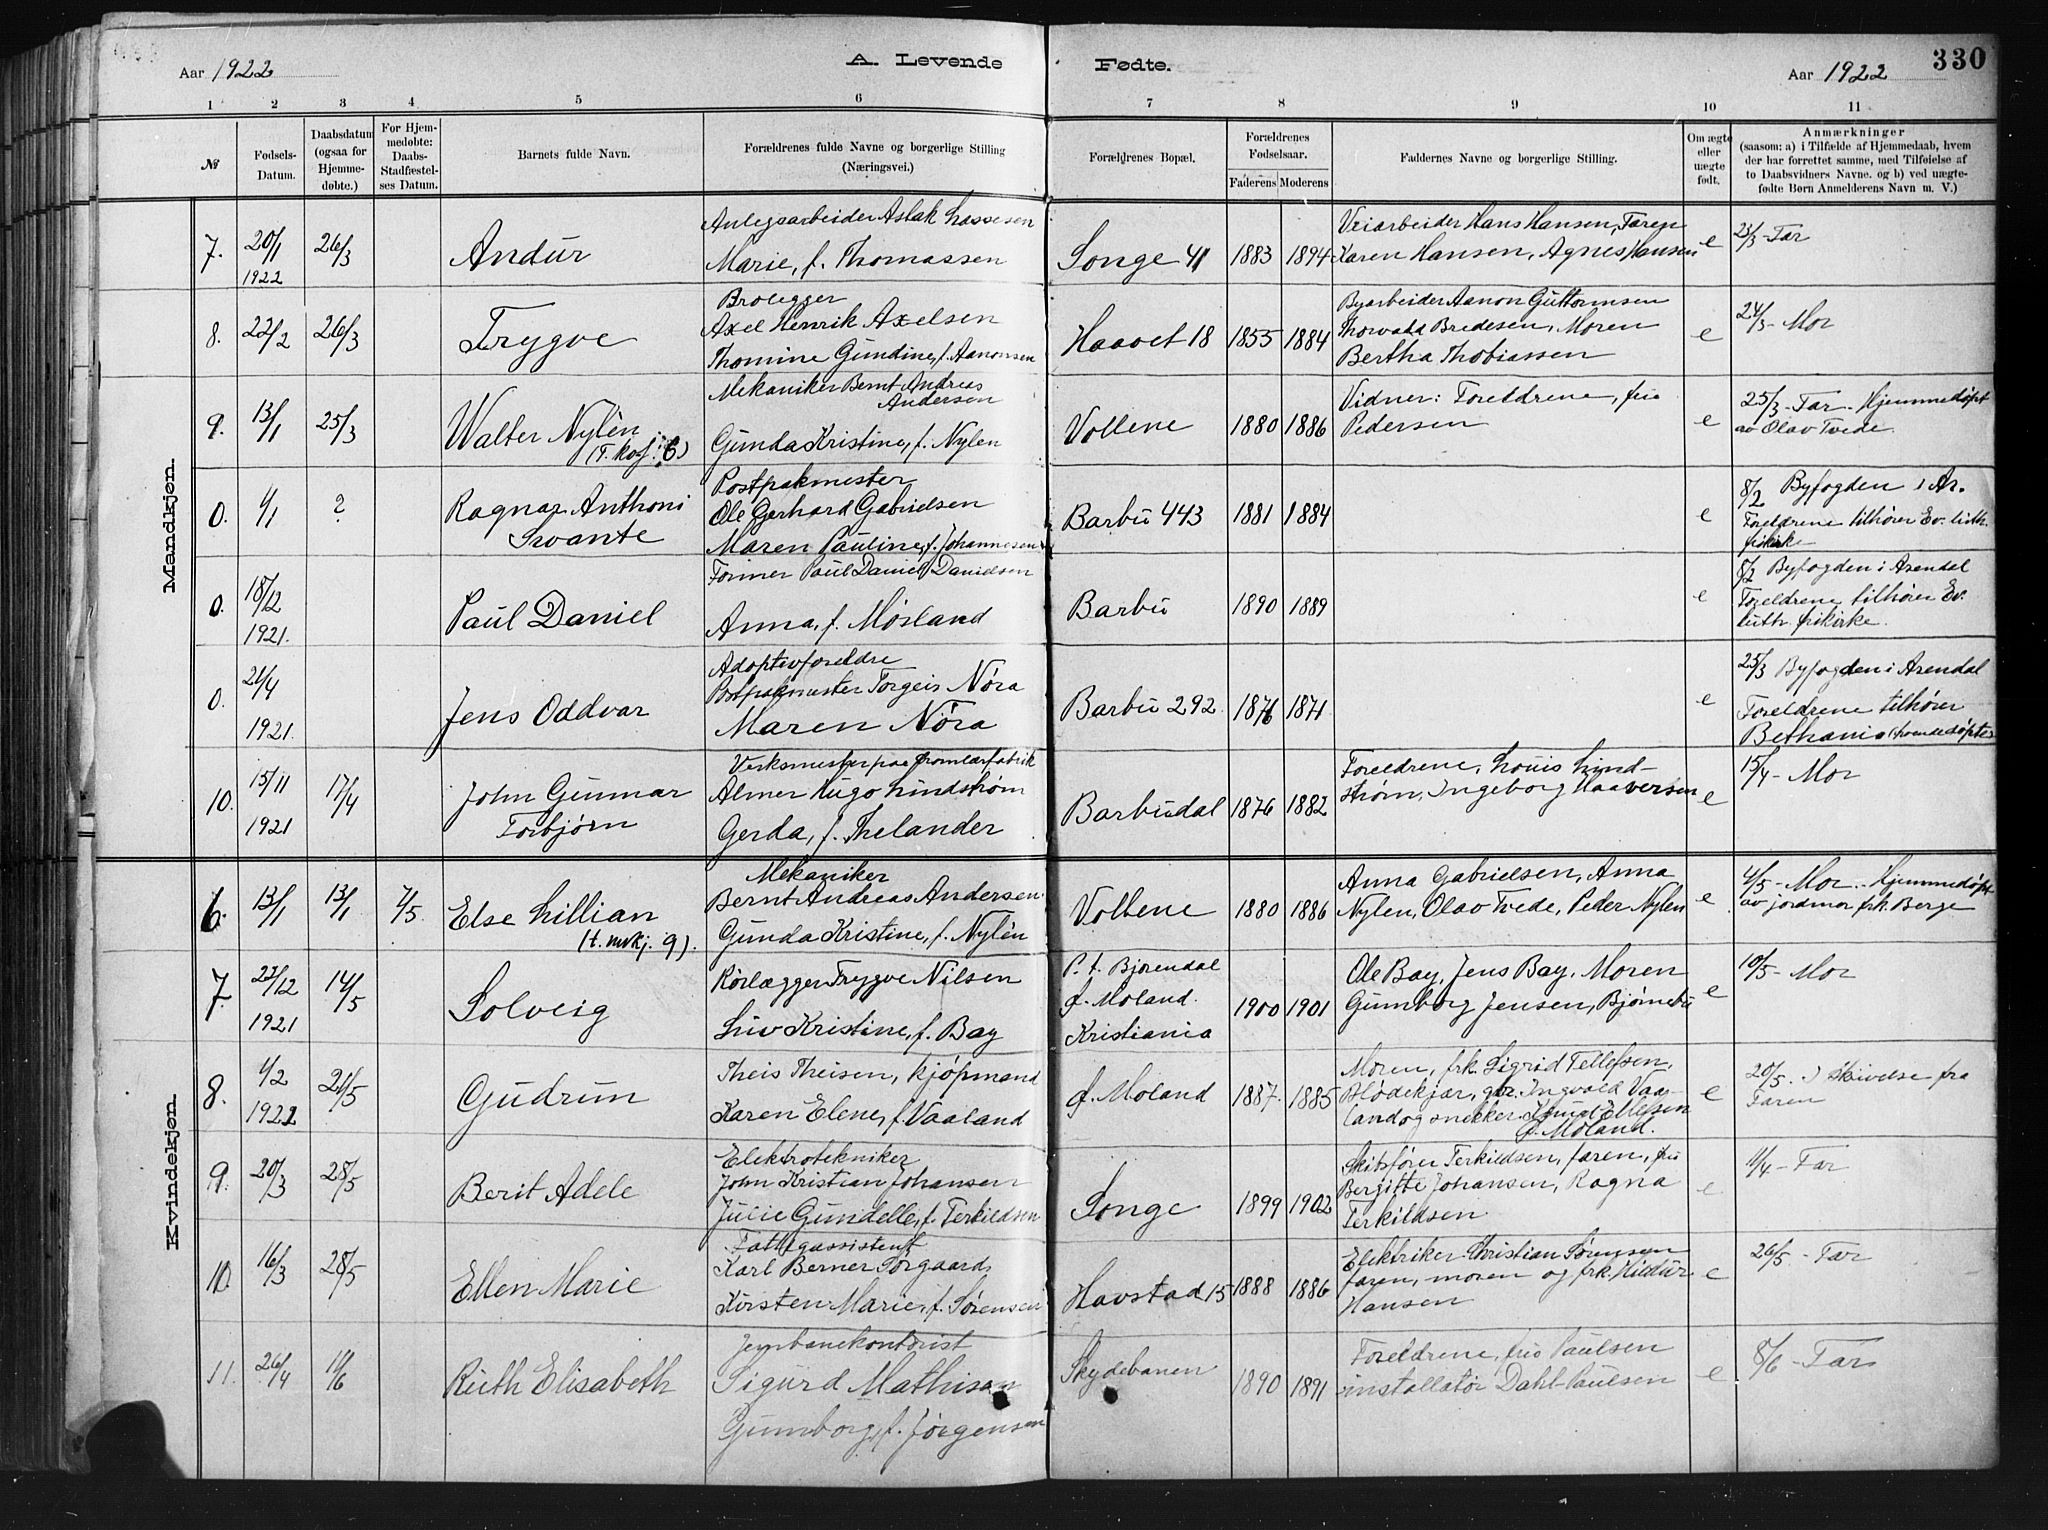 Aar 1922
A. Levende Fødte.
Aar 1922
330
1 2 3 4 5 6 7 8 9 10 11
№
Fødsels-Datum.
Daabsdatum (ogsaa for Hjemme-døbte.)
For Hjem-medøbte: Daabs-Stadfæstel-ses Datum.
Barnets fulde Navn.
Forældrenes fulde Navne og borgerlige Stilling (Næringsvei.)
Forældrenes Bopæl.
Forældrenes Fødselsaar.
Faderens Moderens
Faddernes Navne og borgerlige Stilling.
Om ægte eller uægte født.
Anmærkninger
(saasom: a) i Tilfælde af Hjemmedaab, hvem
der har forrettet samme, med Tilføielse af
to Daabsvidners Navne. og b) ved uægte-
fødte Børn Anmelderens Navn m. V.)
Mandkjøn.
7. 20/1 1922 26/3 Andur
Anlegsarbeider Aslak Lassesen
Marie, f. Thomassen
Songe 41 1883 1894
Veiarbeider Hans Hansen, Faren
Karen Hansen, Agnes Hansen
e 23/3 - Far
8. 22/2 26/3 Trygve
Brolegger
Axel Henrik Axelsen
Thomine Gundine, f. Aanonsen
Haavet 18 1855 1884
Byarbeider Aanon Guttormsen
Thorvald Bredesen, Moren
Bertha Thobiassen
e 24/3 - Mor
9. 13/1 25/3 Walter Nylén
Mekaniker Bernt Andreas
Andersen
Gunda Kristine, f. Nylen
Vollene 1880 1886
Vidner: Foreldrene, fru
Pedersen
e 25/3 - Far - Hjemmedøpt
av Olav Tvede.
0. 4/1 ? Ragnar Anthoni
Svante
Postpakmester
Ole Gerhard Gabrielsen
Maren Pauline, f. Johannesen
Barbu 443 1881 1884
e 8/2 Byfogden i Ar.
Foreldrene tilhører Ev. luth.
frikirke
0. 18/12 1921. Paul Daniel
Former Paul Daniel Danielsen
Anna, f. Møsland
Barbu 1890 1889
e 8/2 Byfogden i Arendal
Foreldrene tilhører Ev.
luth. frikirke.
0. 21/4 1921. Jens Oddvar
Adoptivforeldre
Postpakmester Torgeis Nøra
Maren Nøra
Barbu 292 1876 1871
e 25/3 Byfogden i Arendal
Foreldrene tilhører
10. 15/11 1921 17/4 John Gunnar
Torbjørn
Verksmester paa
Almer Hugo Lindstrøm
Gerda, f. Thelander
Barbudal 1876 1882
Foreldrene, Louis Lind-
strøm, Ingeborg Haaversen
e 15/4 - Mor
Kvindekjøn.
6. 13/1 13/1 7/5. Else Lillian
(t. mkj. 9).
Mekaniker
Bernt Andreas Andersen
Gunda Kristine, f. Nylén
Vollene 1880 1886
Anna Gabrielsen, Anna
Nylen, Olav Tvede, Peder Nylen
e 4/5 - Mor. Hjemmedøpt
av jordmor frk. Berge
7. 27/12 1921 14/5 Solveig
Rørlægger Trygve Nilsen
Liv Kristine, f. Bay
P. t. Bjorendal
ø. Moland.
Kristiania
1900 1901
Ole Bay, Jens Bay, Moren
Gunborg Jensen, Bjørnebu
e 10/5 - Mor
8. 4/2 1922 21/5 Gudrun
Theis Theisen, kjøpmand
Karen Elene, f. Vaaland
ø. Moland 1887. 1885
Moren, frk. Sigrid Tellefsen,
Blødekjær, gbr. Ingvald Vaa-
land og snekker Knud Ellefsen
ø. Moland.
e 20/5. I skrivelse fra
Faren
9. 20/3 28/5 Berit Adele
Elektrotekniker
John Kristian Johansen
Julie Gundelle, f. Terkildsen
Songe 1899 1902
Skibsfører Terkildsen, faren, fru
Bergitte Johansen, Ragna
Terkildsen
e 11/4 - Far
10. 16/3 28/5 Ellen Marie
Fattigassistent
Karl Berner Torgaard
Kirsten Marie, f. Sørensen
Havstad 15 1888 1886
Elektriker Christian Sørensen
faren, moren og frk. Hildur
Hansen
e 26/5 - Far
11. 26/4 11/6 Ruth Elisabeth
Jernbanekontorist
Sigurd Mathisen
Gunborg, f. Jørgensen
Skydebanen 1890 1891
Foreldrene, fru Paulsen
installatør Dahl-Paulsen
e 8/6 - Far